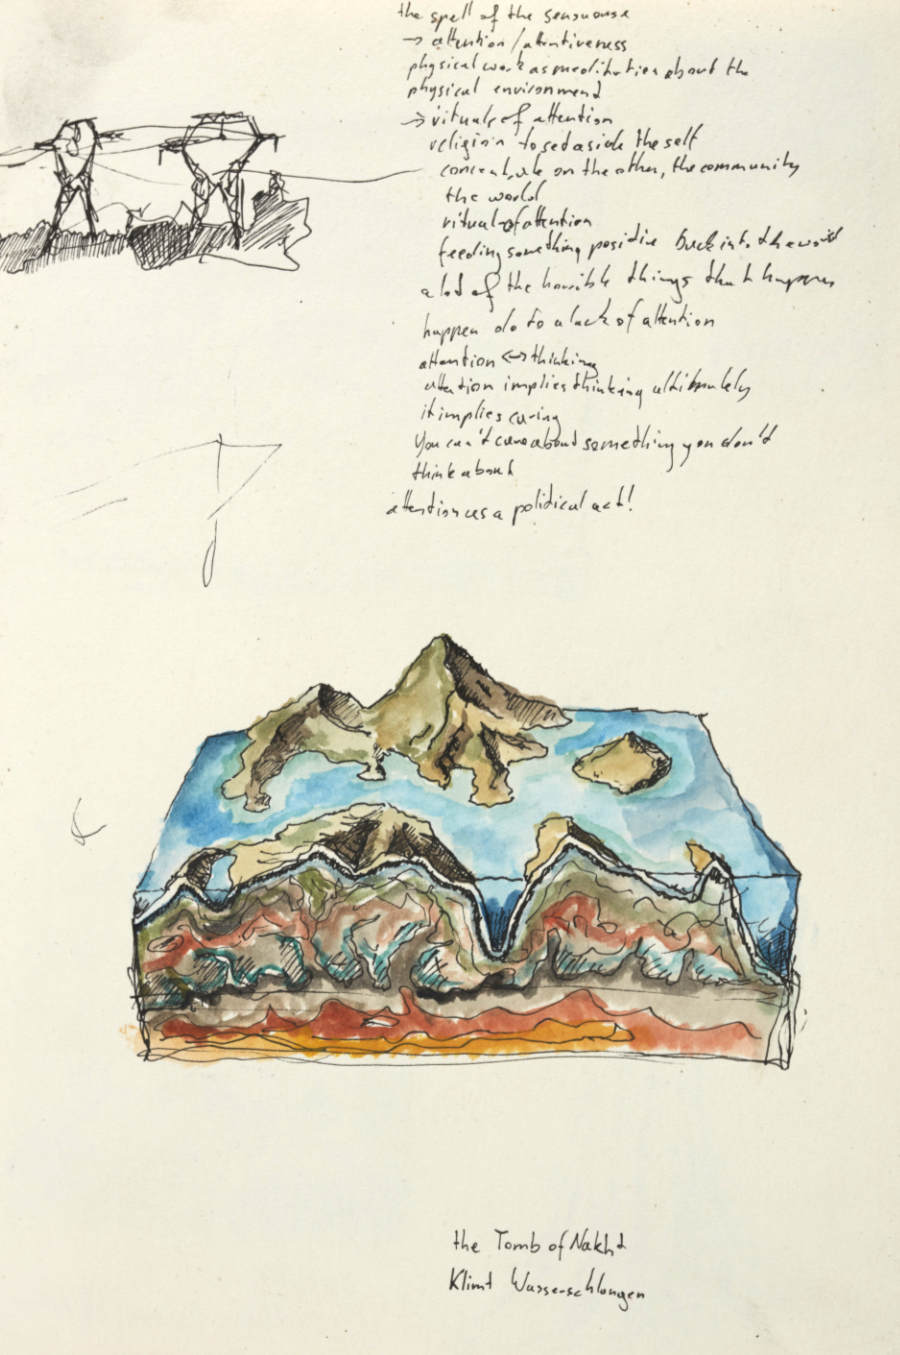 the spell of the sensuouse
→ attention / attentiveness
physical work as meditation about the
physical environment
→ rituals of attention
religion to sed aside the self
concentrate on the other, the community
the world
ritual of attention
feeding something positive back into the world
a lot of the horrible things that happen
happen do to a lack of attention
attention ↔ thinking
attention implies thinking ultimately
it implies caring
You can't care about something you don't
think about
attention as a political act!
the Tomb of Nakht
Klimt Wasserschlangen